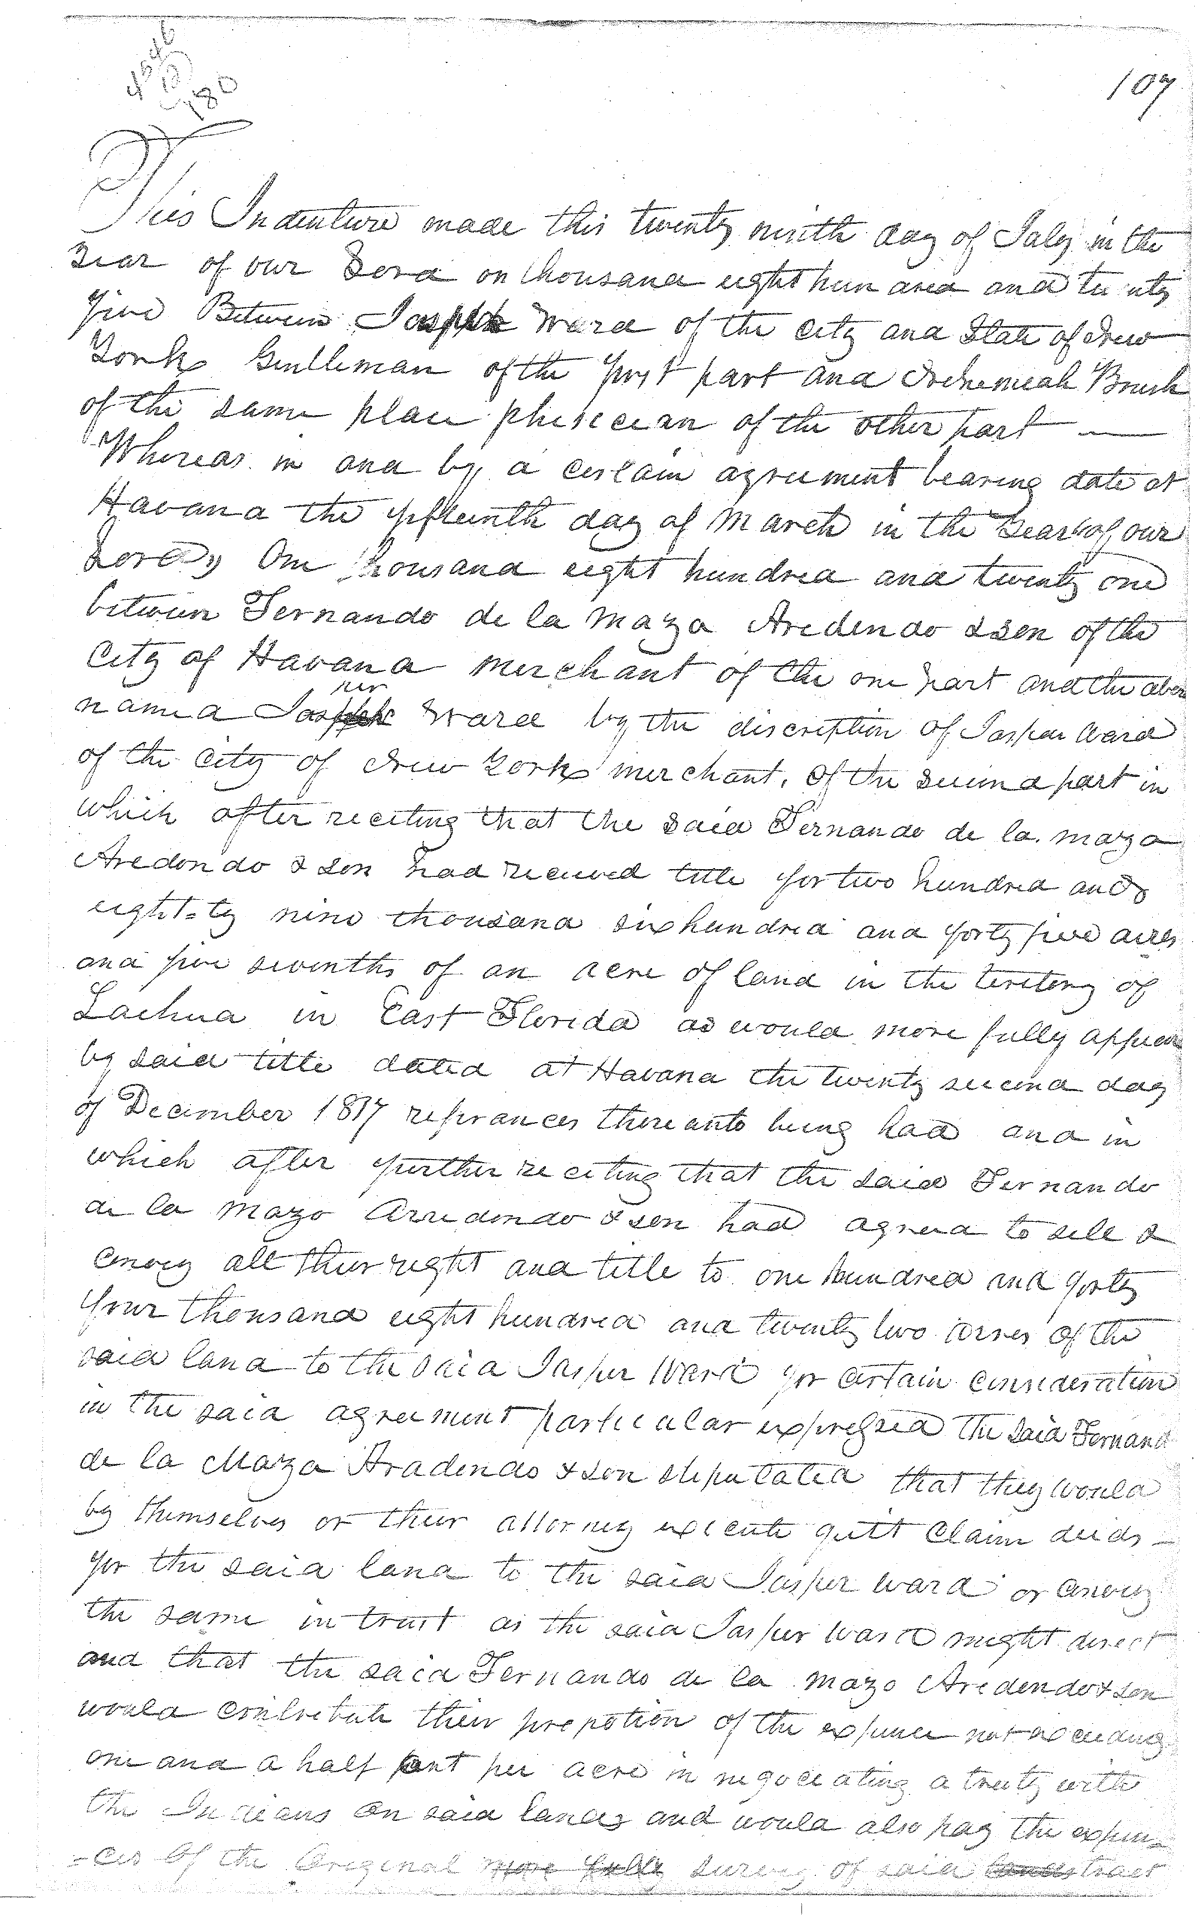 107
This Indenture made this twenty ninth day of July in the
Year of our Lord on thousand eight hundred and twenty
five Between Ward of the city and State of New
York Gentleman of the first part and Nehemiah Brush
of the same place phisecian of the other part —
Whereas in and by a certain agreement bearing date at
Havana the fifteenth day of March in the Year of our
Lord One thousand eight hundred and twenty one
between Fernando de la Maza Aredendo & son of the
City of Havana merchant of the one part and the abov
named Jasper Ward by the discription of Jasper Ward
of the City of New York merchant. of the second part in
which after reciting that the said Fernando de la maza
Aredondo & son had received title for two hundred and
eight-ty nine thousand six hundred and forty five acres
and five sevenths of an acre of land in the teritory of
Lachua in East Florida as would more fully appear
by said title dated at Havana the twenty second day
of December 1817 refrances thereunto being had and in
which after further reciting that the said Fernando
de la Mazo Arredondo & son had agreed to sell &
convey all their right and title to one hundred and forty
four thousand eight hundred and twenty two acres of the
said land to the said Jasper Ward for certain consideration
in the said agreement particular expressed the said Fernand
de la Maza Aradendo & son stiputated that they would
by themselves or their attorney execute quit Claim deeds –
for the said land to the said Jasper Ward or convey
the same in trust as the said Jasper Ward might direct
and that the said Fernando de la mazo Aredendo & son
would contribute their propotion of the expence not exceeding
one and a half cent per acre in negociating a treaty with
the Indians on said lands and would also pay the expen-
-ces of the Original more fully survey of said tract